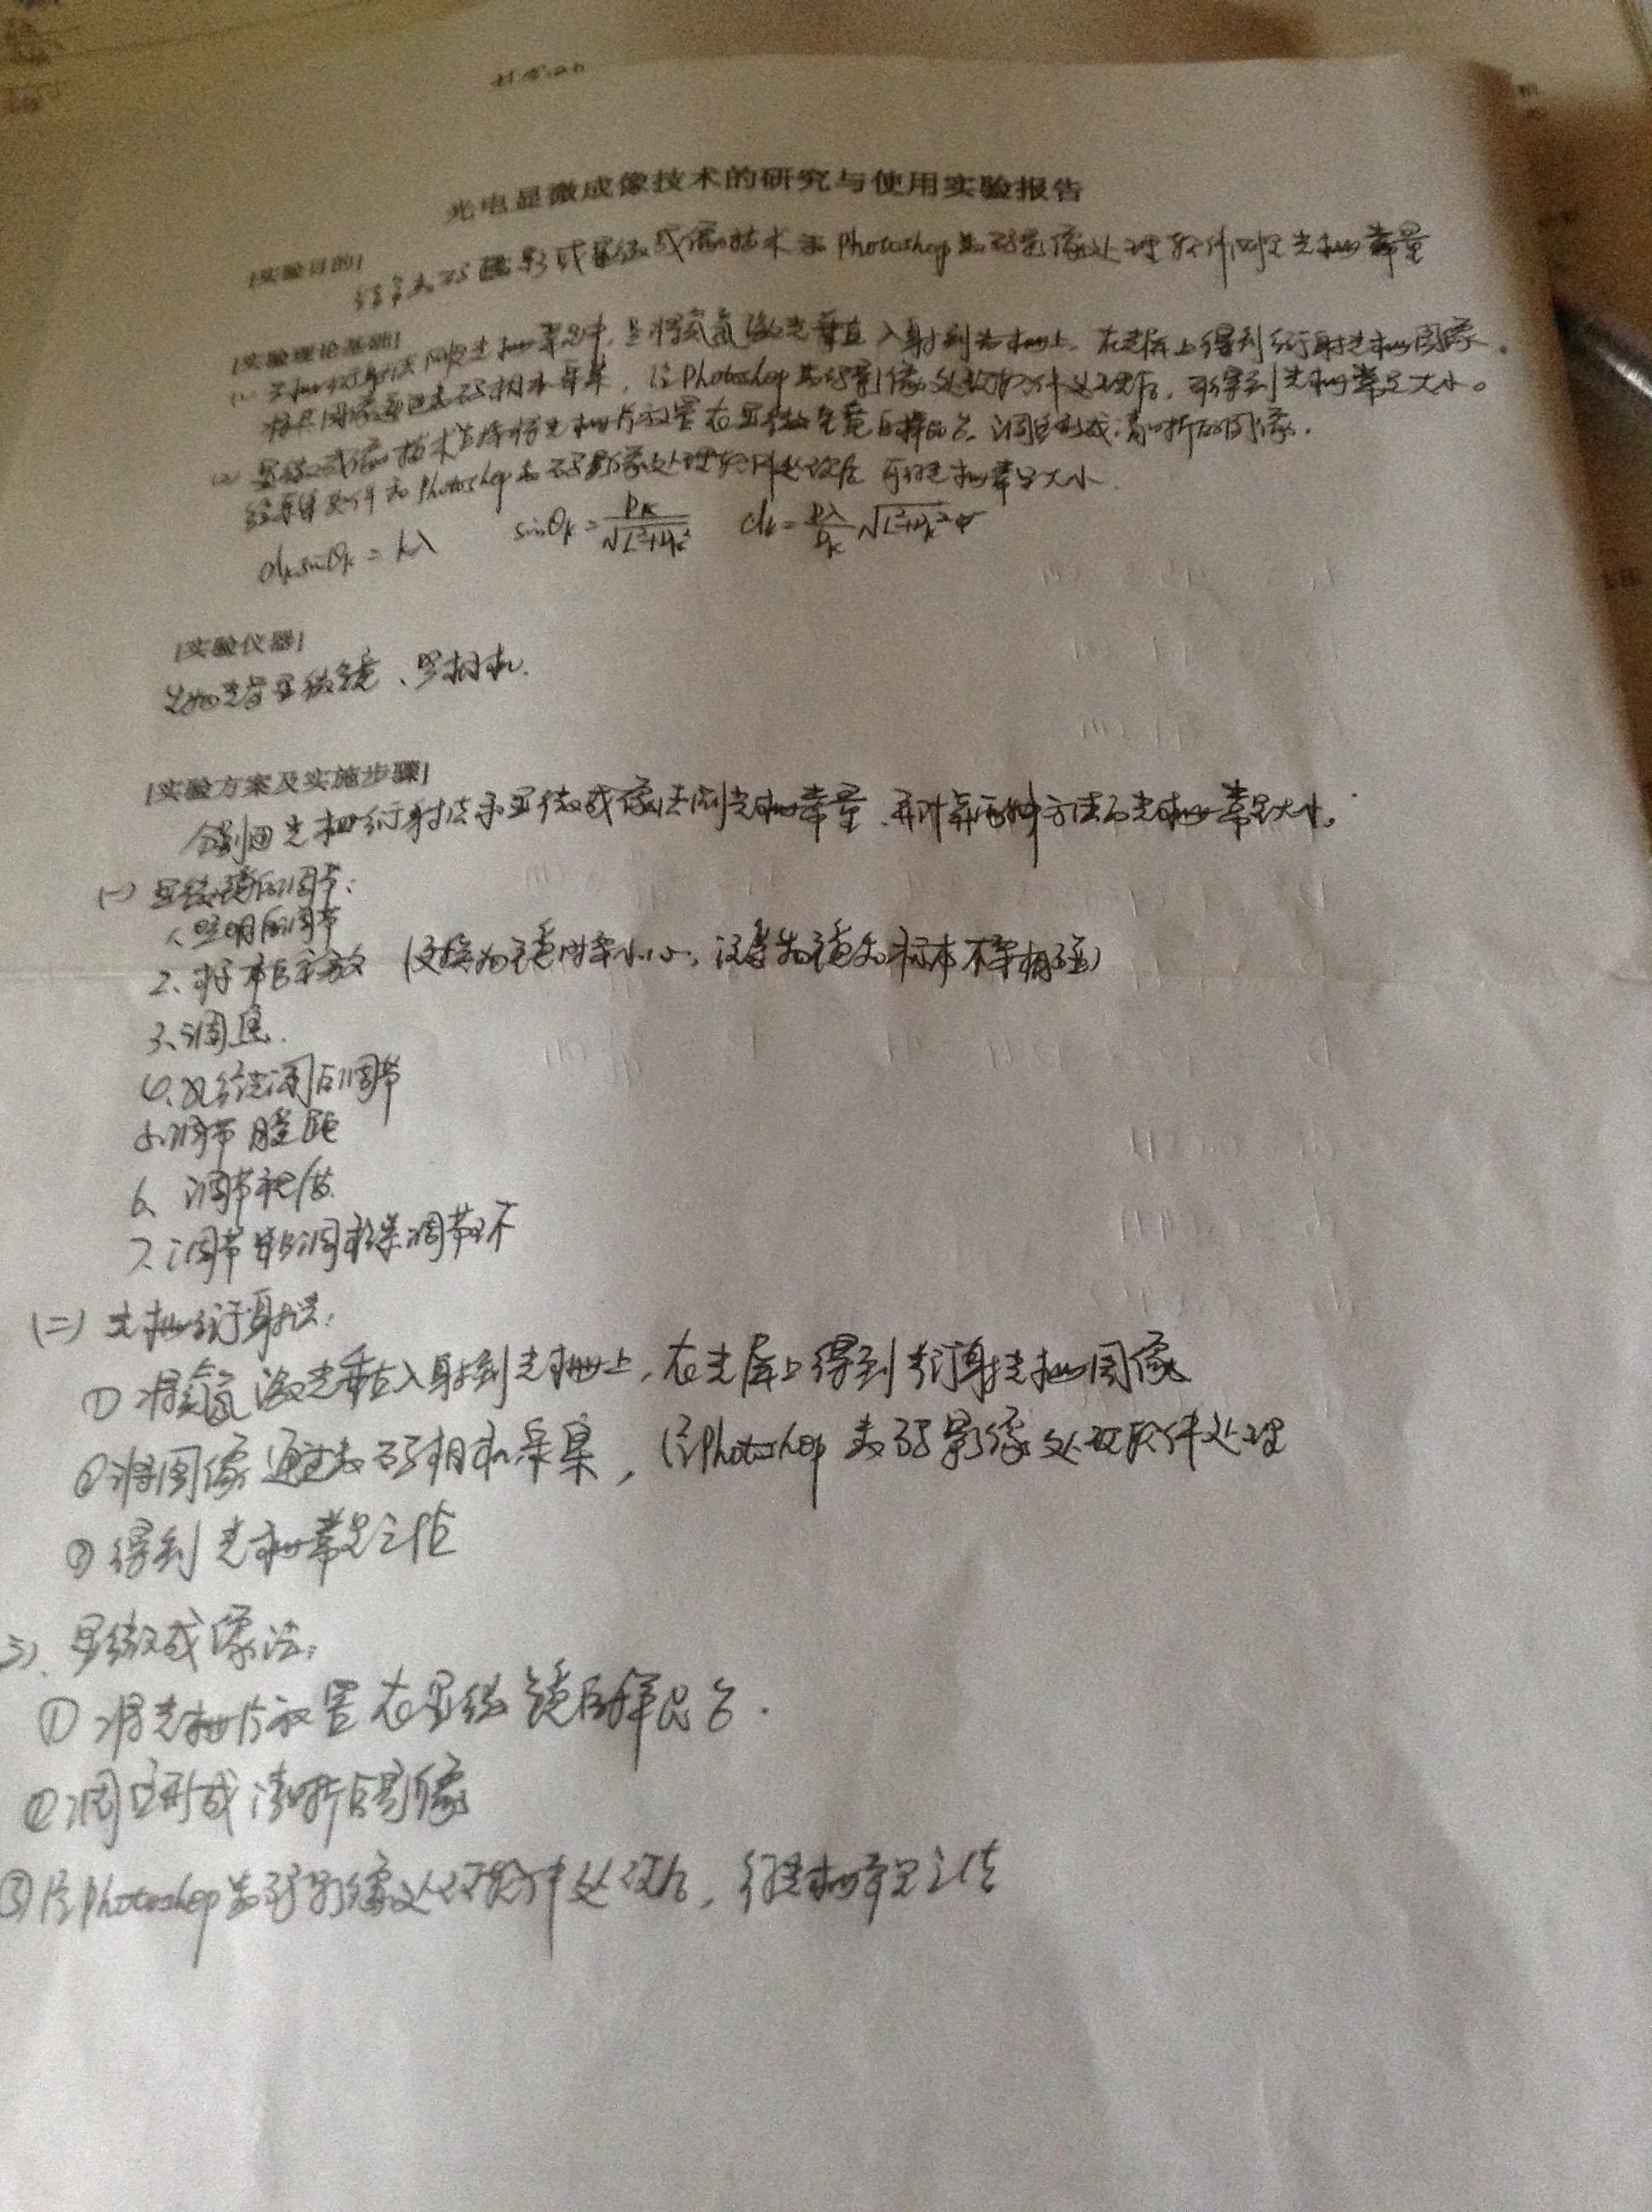 光电显微成像技术的研究与使用实验报告
[实验目的]
结合数码摄影或显微成像技术和Photoshop数码影像处理软件测定光栅常量
[实验理论基础]
(1) 光栅衍射法测定光栅常量中,是将氦氖激光垂直入射到光栅上,在光屏上得到衍射光栅图像。
将其图像通过数码相机采集,经Photoshop数码影像处理软件处理后,可得到光栅常量大小。
(2) 显微成像技术是将光栅片放置在显微镜的样品台,调节形成清晰的图像.
经采集软件和Photoshop数码影像处理软件处理后 可得光栅常量大小.
dₖsinθₖ=kλ sinθₖ=Pₖ/√(L²+Pₖ²) dₖ= √(L²+Pₖ²)
[实验仪器]
显微镜、 相机.
[实验方案及实施步骤]
分别用光栅衍射法和显微成像法测光栅常量,再计算两种方法的光栅常量大小。
(一) 显微镜的调节:
1、照明的调节
2、标本的放 (变换物镜倍率小心,误导物镜和标本不要相碰)
3、调焦.
4、 的调节
5、调节瞳距
6、调节视
7、调节 调节环
(二) 光栅衍射法:
① 将氦氖激光垂直入射到光栅上,在光屏上得到衍射光栅图像
②将图像通过数码相机采集,经Photoshop数码影像处理软件处理
③得到光栅常量之值
三)、显微成像法:
① 将光栅片放置在显微镜的样品台.
②调节形成清晰的影像
③经Photoshop数码影像处理软件处理后,得光栅常量之值